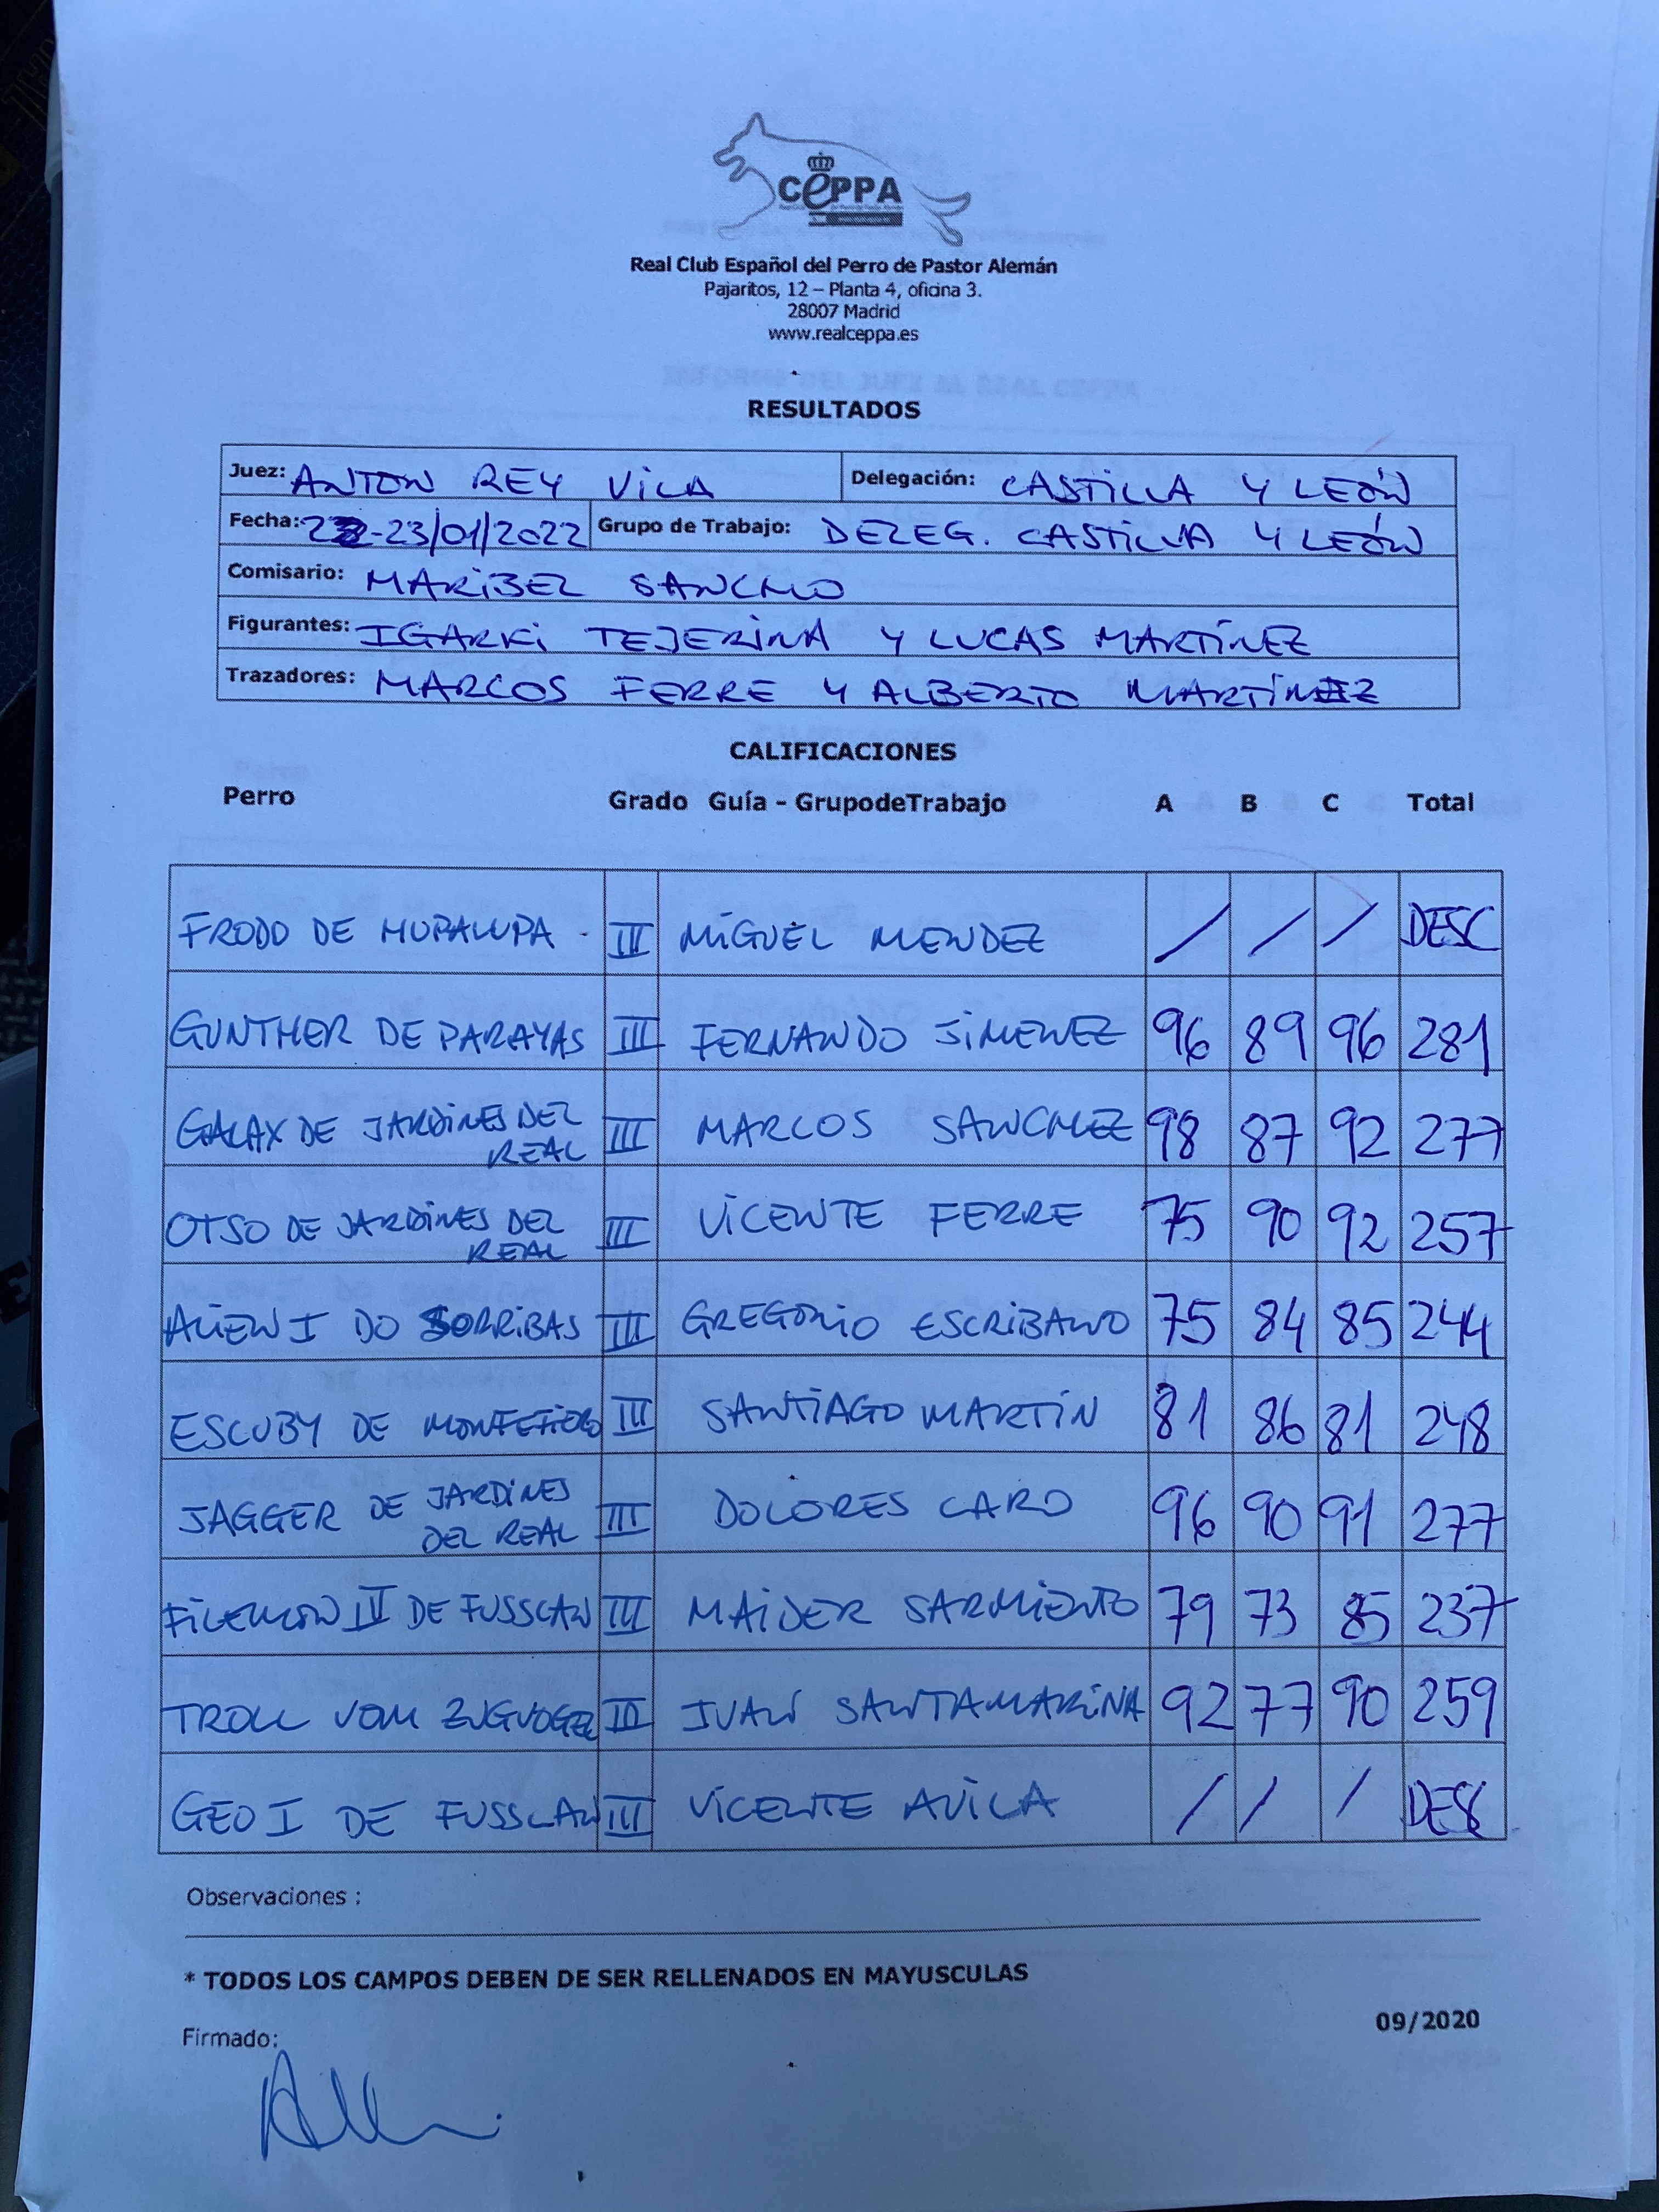 CEPPA
Real Club Español del Perro de Pastor Alemán
Pajaritos, 12 – Planta 4, oficina 3.
28007 Madrid
www.realceppa.es
RESULTADOS
Juez: ANTON REY VILA Delegación: CASTILLA Y LEÓN
Fecha: 22-23/01/2022 Grupo de Trabajo: DELEG. CASTILLA Y LEÓN
Comisario: MARIBEL SANCHO
Figurantes: IGARKI TEJERINA Y LUCAS MARTÍNEZ
Trazadores: MARCOS FERRE Y ALBERTO MARTÍNEZ
CALIFICACIONES
Perro Grado Guía - GrupodeTrabajo A B C Total
FRODO DE HUPALUPA III MIGUEL MENDEZ / / / DESC
GUNTHER DE PARAYAS III FERNANDO JIMENEZ 96 89 96 281
GALAX DE JARDINES DEL REAL III MARCOS SANCHEZ 98 87 92 277
OTSO DE JARDINES DEL REAL III VICENTE FERRE 75 90 92 257
ALIEN I DO SORRIBAS III GREGORIO ESCRIBANO 75 84 85 244
ESCUBY DE MONTEFIERO III SANTIAGO MARTIN 81 86 81 248
JAGGER DE JARDINES DEL REAL III DOLORES CARO 96 90 91 277
FILEMON IV DE FUSSCAN III MAIDER SARMIENTO 79 73 85 237
TROLL VOM ZUGVOGEL III JUAN SANTAMARINA 92 77 90 259
GEO I DE FUSSCAN III VICENTE AVILA / / / DESC
Observaciones :
* TODOS LOS CAMPOS DEBEN DE SER RELLENADOS EN MAYUSCULAS
09/2020
Firmado: